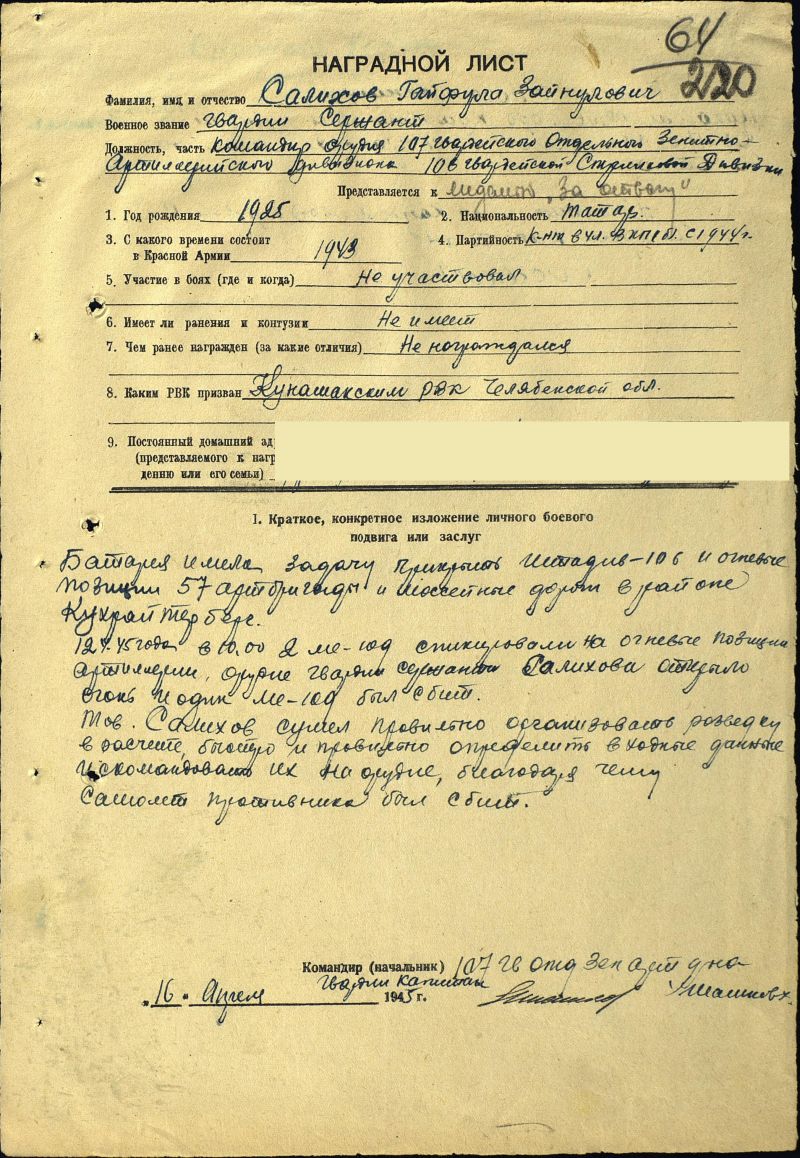 64
220
НАГРАДНОЙ ЛИСТ
Фамилия, имя и отчество Салихов Гатфула Зайнулович
Военное звание Гвардии Сержант
Должность, часть Командир орудия 107 гвардейского Отдельного Зенитно-
Артиллерийского Дивизиона 106 гвардейской Стрелковой Дивизии
Представляется к медалью „За отвагу"
1. Год рождения 1925 2. Национальность татар.
3. С какого времени состоит 4. Партийность К-нт в чл. ВКП(б). с 1944 г.
в Красной Армии 1943
5. Участие в боях (где и когда) Не участвовал
6. Имеет ли ранения и контузии Не имеет
7. Чем ранее награжден (за какие отличия) Не награждался
8. Каким РВК призван Кунашакским РВК Челябенской обл.
9. Постоянный домашний ад
(представляемого к наг
дению или его семьи)
I. Краткое, конкретное изложение личного боевого
подвига или заслуг
Батарея имела задачу прикрыть штадив-106 и огневые
позиции 57 артбригады и шоссетные дороги в районе
12.4.45 года в 10.00 2 ме-109 спикировали на огневые позиции
артиллерии, орудие гвардии сержанта Салихова открыло
огонь и один ме-109 был сбит.
Тов. Салихов сумел правильно организовать разведку
в расчете, быстро и правильно определить входные данные
и скомандовать их на орудие, благодаря чему
самолет противника был сбит.
Командир (начальник) 107 гв отд зен арт д-на
Гвардии Капитан
„16" Апреля 1945 г.